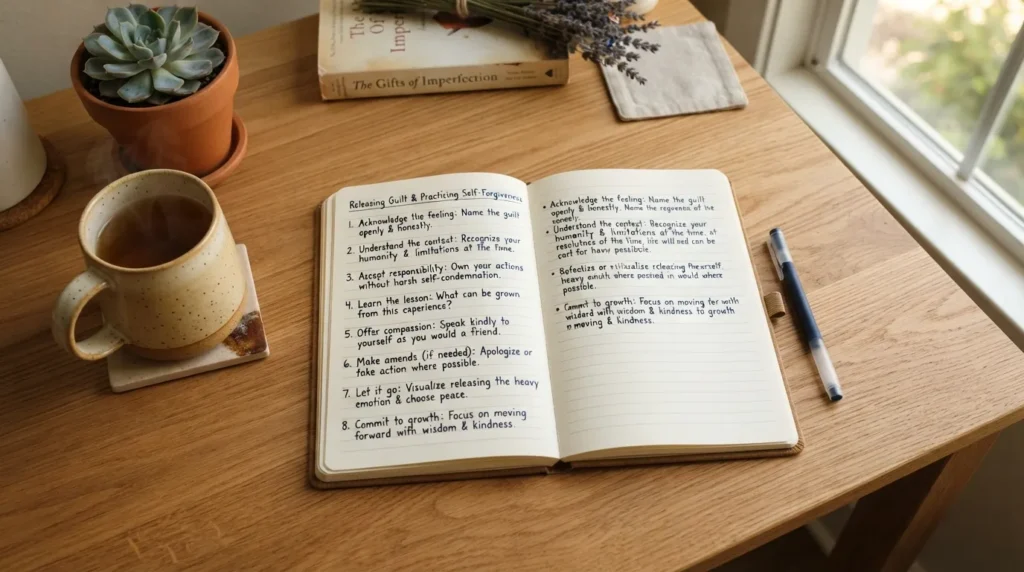 The
Of
Imper
The Gifts of Imperfection
Releasing Guilt & Practicing Self-Forgiveness
1. Acknowledge the feeling: Name the guilt
openly & honestly.
2. Understand the context: Recognize your
humanity & limitations at the time.
3. Accept responsibility: Own your actions
without harsh self-condemnation.
4. Learn the lesson: What can be grown
from this experience?
5. Offer compassion: Speak kindly to
yourself as you would a friend.
6. Make amends (if needed): Apologize or
take action where possible.
7. Let it go: Visualize releasing the heavy
emotion & choose peace.
8. Commit to growth: Focus on moving
forward with wisdom & kindness.
• Acknowledge the feeling: Name the guilt
openly & honestly. Name the of the
• Understand the context: Recognize your
humanity & limitations at the time. at
of the time, will can be
for possible.
• or releasing
heavy where in would where
possible.
• Commit to growth: Focus on moving for with
with wisdom & kindness to growth
moving & kindness.